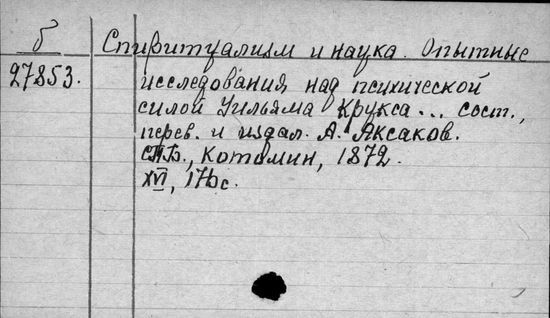 б Спиритуализм и наука. Опытные
27853. исследования над психической
силой Уильяма Крукса... сост.,
перев. и издал. А. Аксаков.
СПБ., Котомин, 1872.
XVI, 176с.